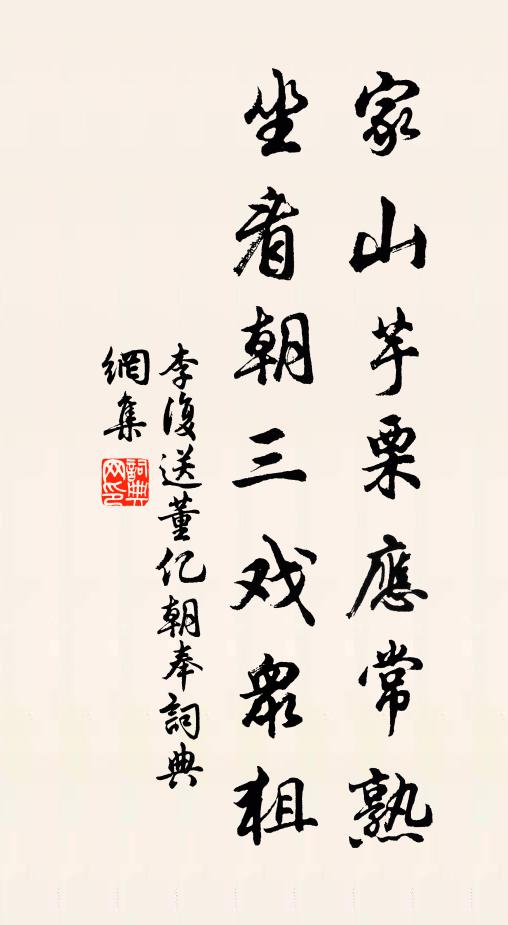 家山芋栗應常熟
坐看朝三戏衆狙
李復送董亿朝奉詞典
網集
詞典
网印